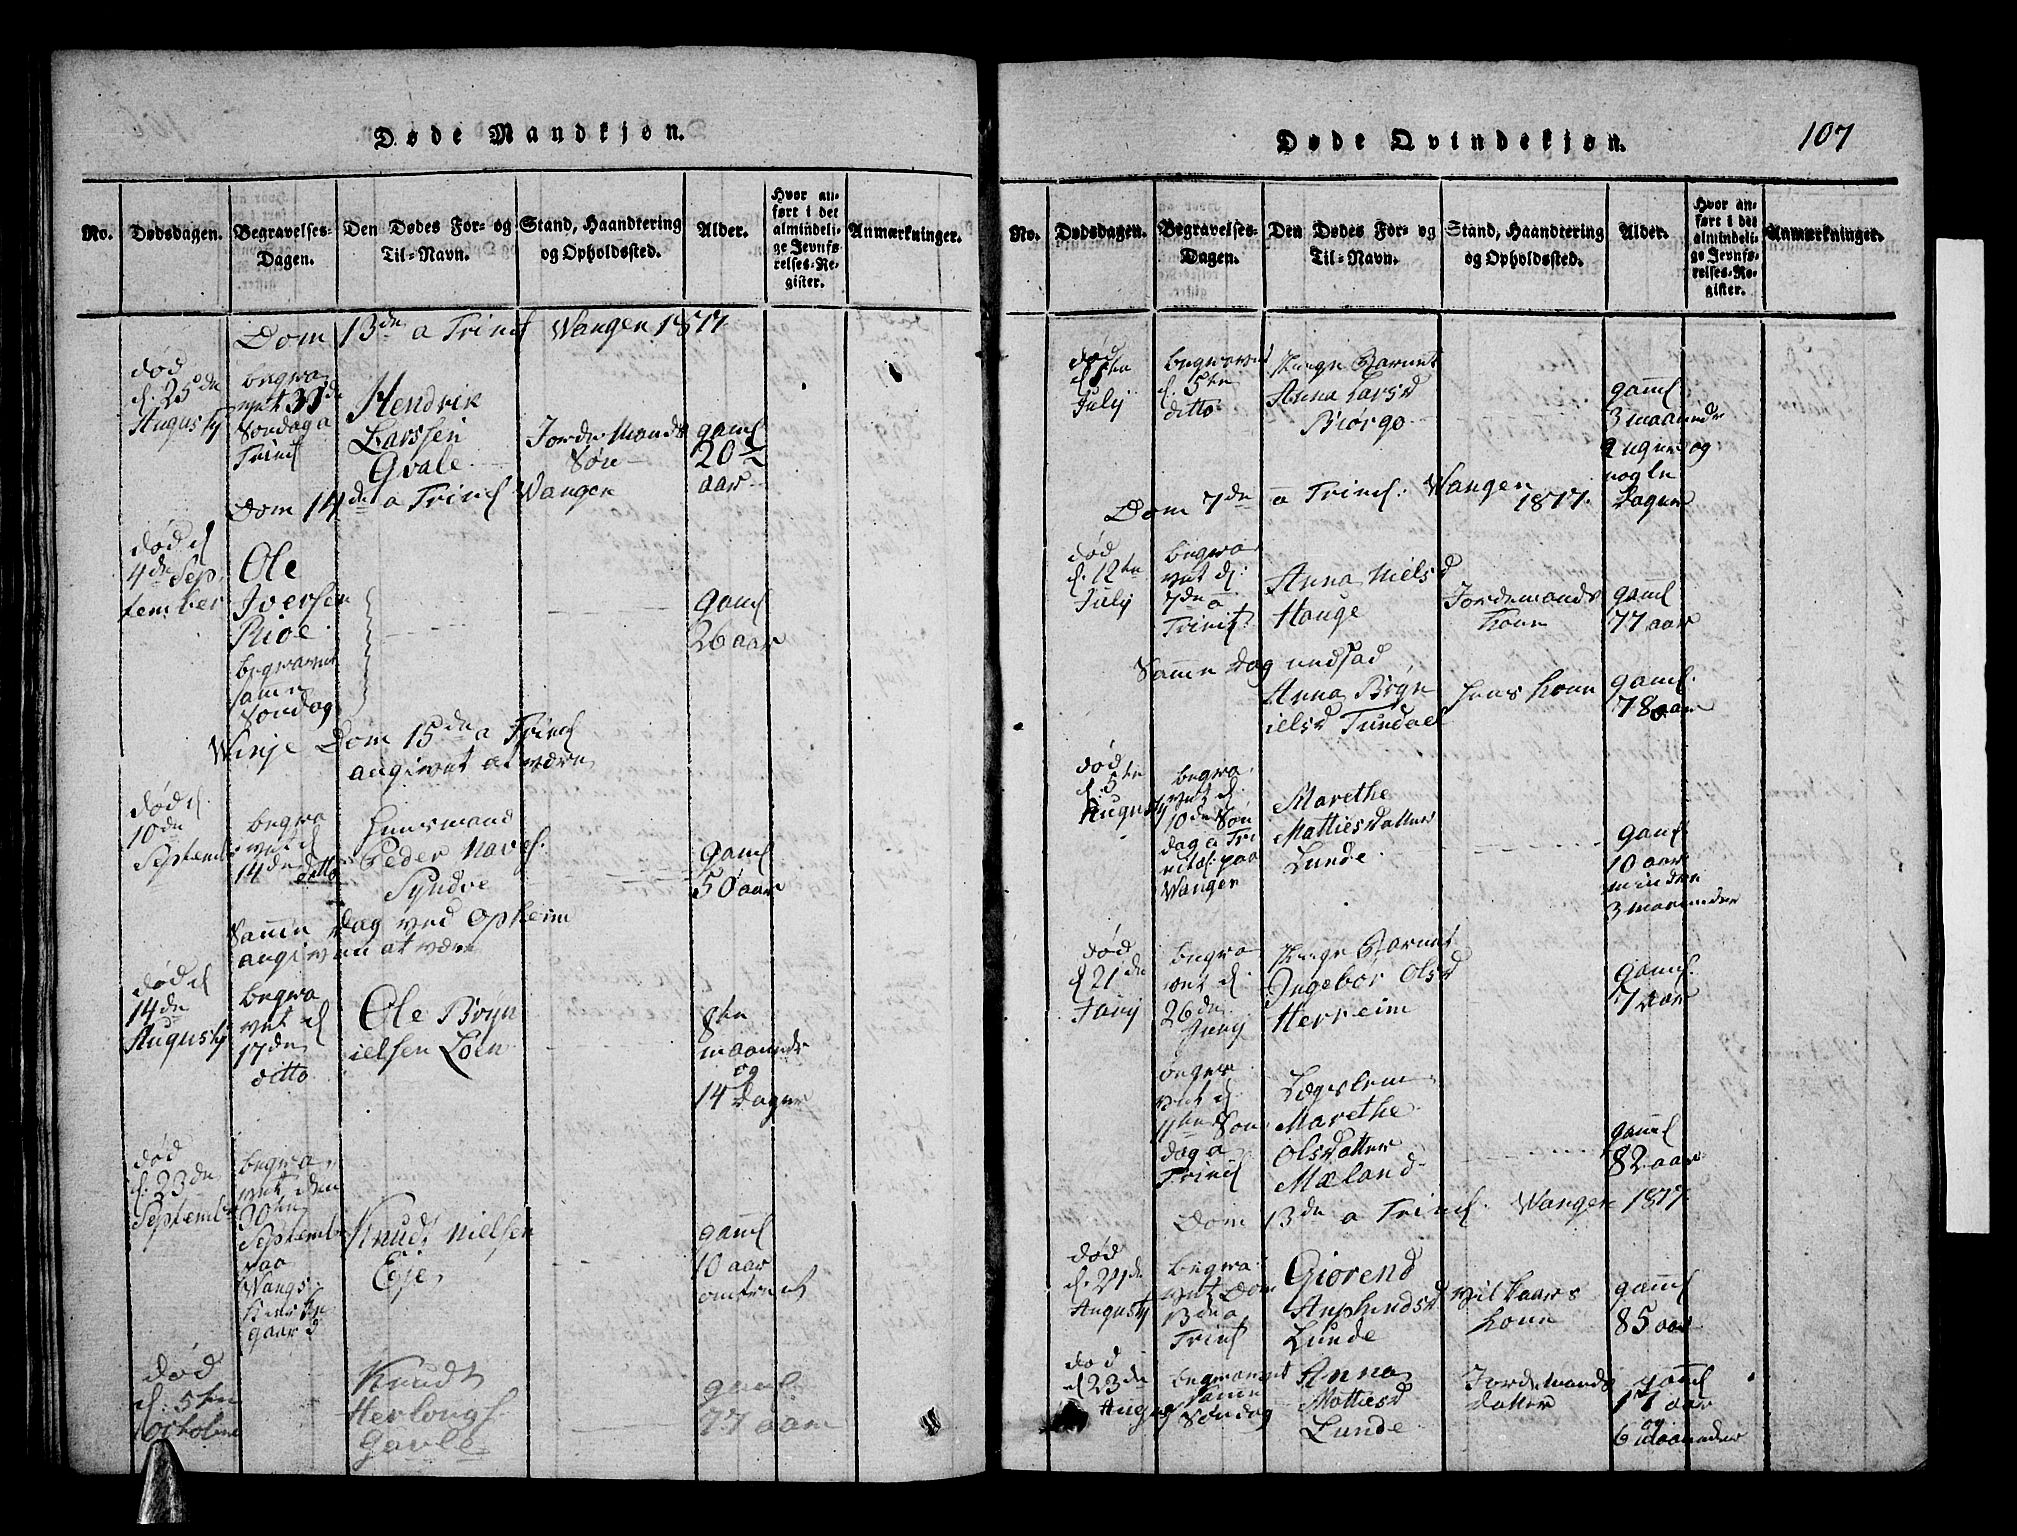 Døde Mandkjøn.
No.
Dødsdagen.
Begravelses-
Dagen.
Den Dødes For- og
Til-Navn.
Stand, Haandtering
og Opholdssted.
Alder.
Hvor an-
ført i det
almindeli-
ge Jevnfø-
relses-Re-
gister.
Anmærkninger.
Dom 13de a Trinit Wangen 1817
død
d. 25de
Augustij
begra
vet 13de
Søndag a
Trinit
Hendrik
Larssen
Qvale
Jordemands
Søn
gaml
20 1/2
aar
Dom 14de a Trinit Wangen
død d
4de Sep
tember
Ole
Iversen
Riøe
begravet
samme
Søndag
gaml
26 aar
Winje Dom 15de a Trinit
angivet at være
død d.
10de
Septemb
begra
vet d
14de ditto
Huusmand
Peder Navels.
Syndre
gaml
50 aar
Samme Dag ved Opheim
angiven at være
død d
14de
Augustij
begra
vet d
17de
ditto
Ole Brÿn
ielsen Loen
8te
maaneder
og
14 Dager
død
d. 23de
Septemb
begra
vet den
30te
Septemb
paa
Wangs
Kierke
gaard
Knud Nielsen
Egje
gaml
10 aar
omtrent
død
d. 5te
October
Knudt
Herlougs.
Gavle
gaml.
77 aar
Døde Qvindekjøn.
107
No.
Dødsdagen.
Begravelses-
Dagen.
Den Dødes For- og
Til-Navn.
Stand, Haandtering
og Opholdssted.
Alder.
Hvor an-
ført i det
almindeli-
ge Jevnfø-
relses-Re-
gister.
Anmærkninger.
død
d 1te
Julij
begravet
d. 5te
ditto
Pige Barnet
Anna Larsd
Biørgo
gaml
3 maander
2 uger og
nogle
Dager
Dom 7de a Trinit. Wangen
1817.
død
d. 12te
Julij
begra
vet d.
7de a
Trinit.
Anna Nielsd
Houge
Jordemands
Kone
gaml
77 aar
Samme Dag nedsad
Anna Brÿn
ielsd Tundal
Huus Kone
gaml.
78 aar
død
d. 5te
Augustij
begra
vet d.
10de Søn
dag a Tri
nitat. paa
Wangen
Marethe
Mathiesdatter
Lunde
gaml.
10 aar
mindre
3 maaneder
død
d 21de
Junij
begra
vet d.
26de
Junij
Pige Barnet
Ingebor Olsd
Herheim
gaml.
7 aar
begra
vet d.
11te Søn
dag a
Trinit
Lægslem
Marethe
Olsdatter
Mæland
gaml
82 aar
Dom 13de a Trinit. Wangen 1817.
død
d. 21de
Augustij
begra
vet Dom
13de a
Trinit
Giørend
Anphindsd
Lunde
Vilkaars
Kone
gaml
85 aar
død
d 23de
August
begravet
samme
Søndag
Anna
Mathiesd
Lunde
Jordemands
datter
gaml
17 aar
og
6 Maaneder